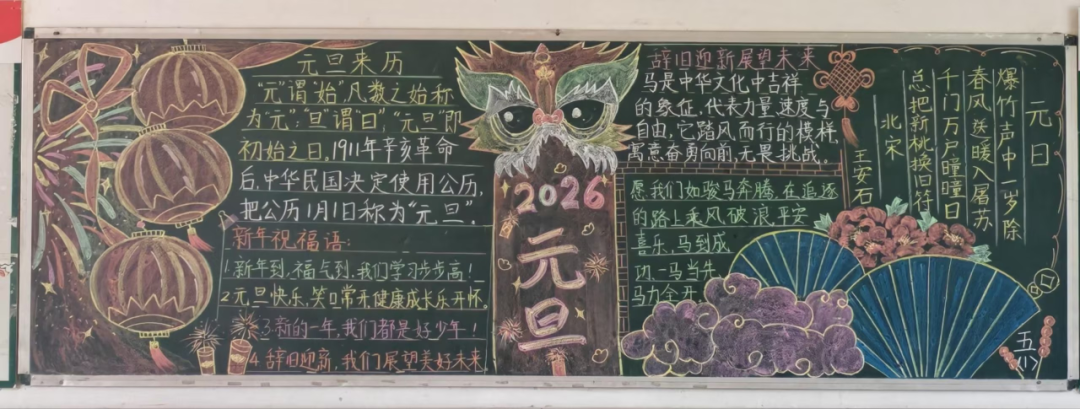 元旦来历
“元”谓“始”凡数之始称
为“元”，“旦”谓“日”，“元旦”即
初始之日，1911年辛亥革命
后，中华民国决定使用公历，
把公历1月1日称为“元旦”。
新年祝福语：
1.新年到，福气到，我们学习步步高！
2.元旦快乐，笑口常开健康成长乐开怀。
3.新的一年，我们都是好少年！
4.辞旧迎新，我们展望美好未来
2026
元旦
辞旧迎新展望未来
马是中华文化中吉祥
的象征，代表力量，速度与
自由，它踏风而行的模样，
寓意奋勇向前，无畏挑战。
愿我们如骏马奔腾，在追逐
的路上乘风破浪，平安
喜乐，马到成
功，一马当先
马力全开
元日
爆竹声中一岁除
春风送暖入屠苏
千门万户曈曈日
总把新桃换旧符
北宋
王安石
五(1)